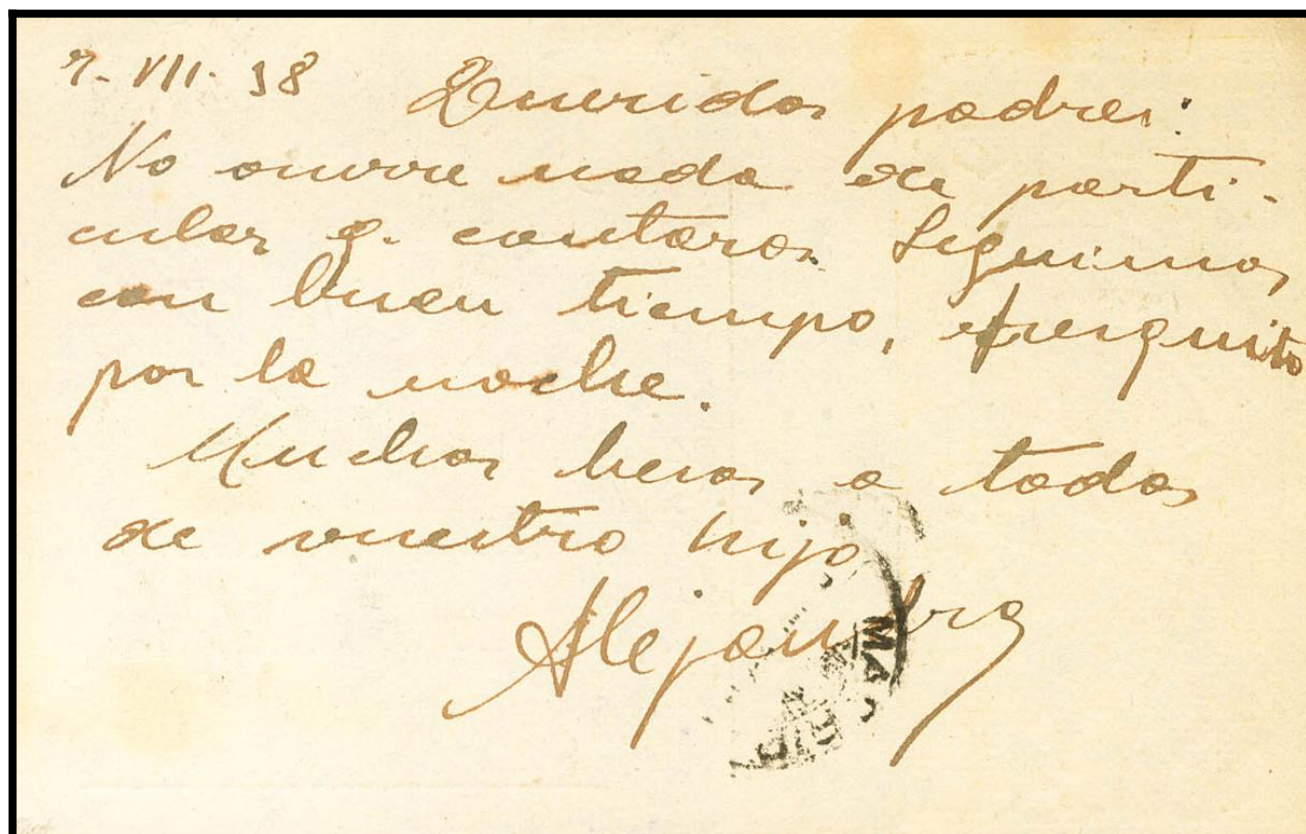 7-VII-38 Queridos padres:
No ocurre nada de parti-
cular q. contaros. Seguimos
con buen tiempo, fresquito
por la noche.
Muchos besos a todos
de vuestro hijo
Alejandro